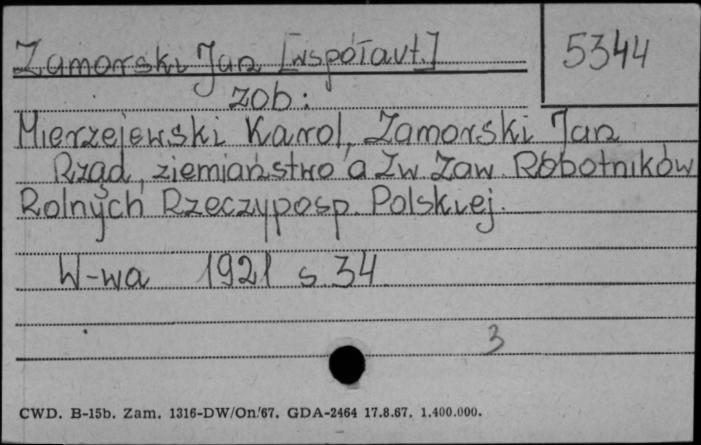 Zamorski Jan [współaut.]
5344
zob:
Mierzejewski Karol, Zamorski Jan
Rząd, ziemiaństwo a Zw Zaw Robotników
Rolnych Rzeczyposp. Polskiej.
W-wa 1921 s. 34
3
CWD. B-15b. Zam. 1316-DW/On/67. GDA-2464 17.8.67. 1.400.000.